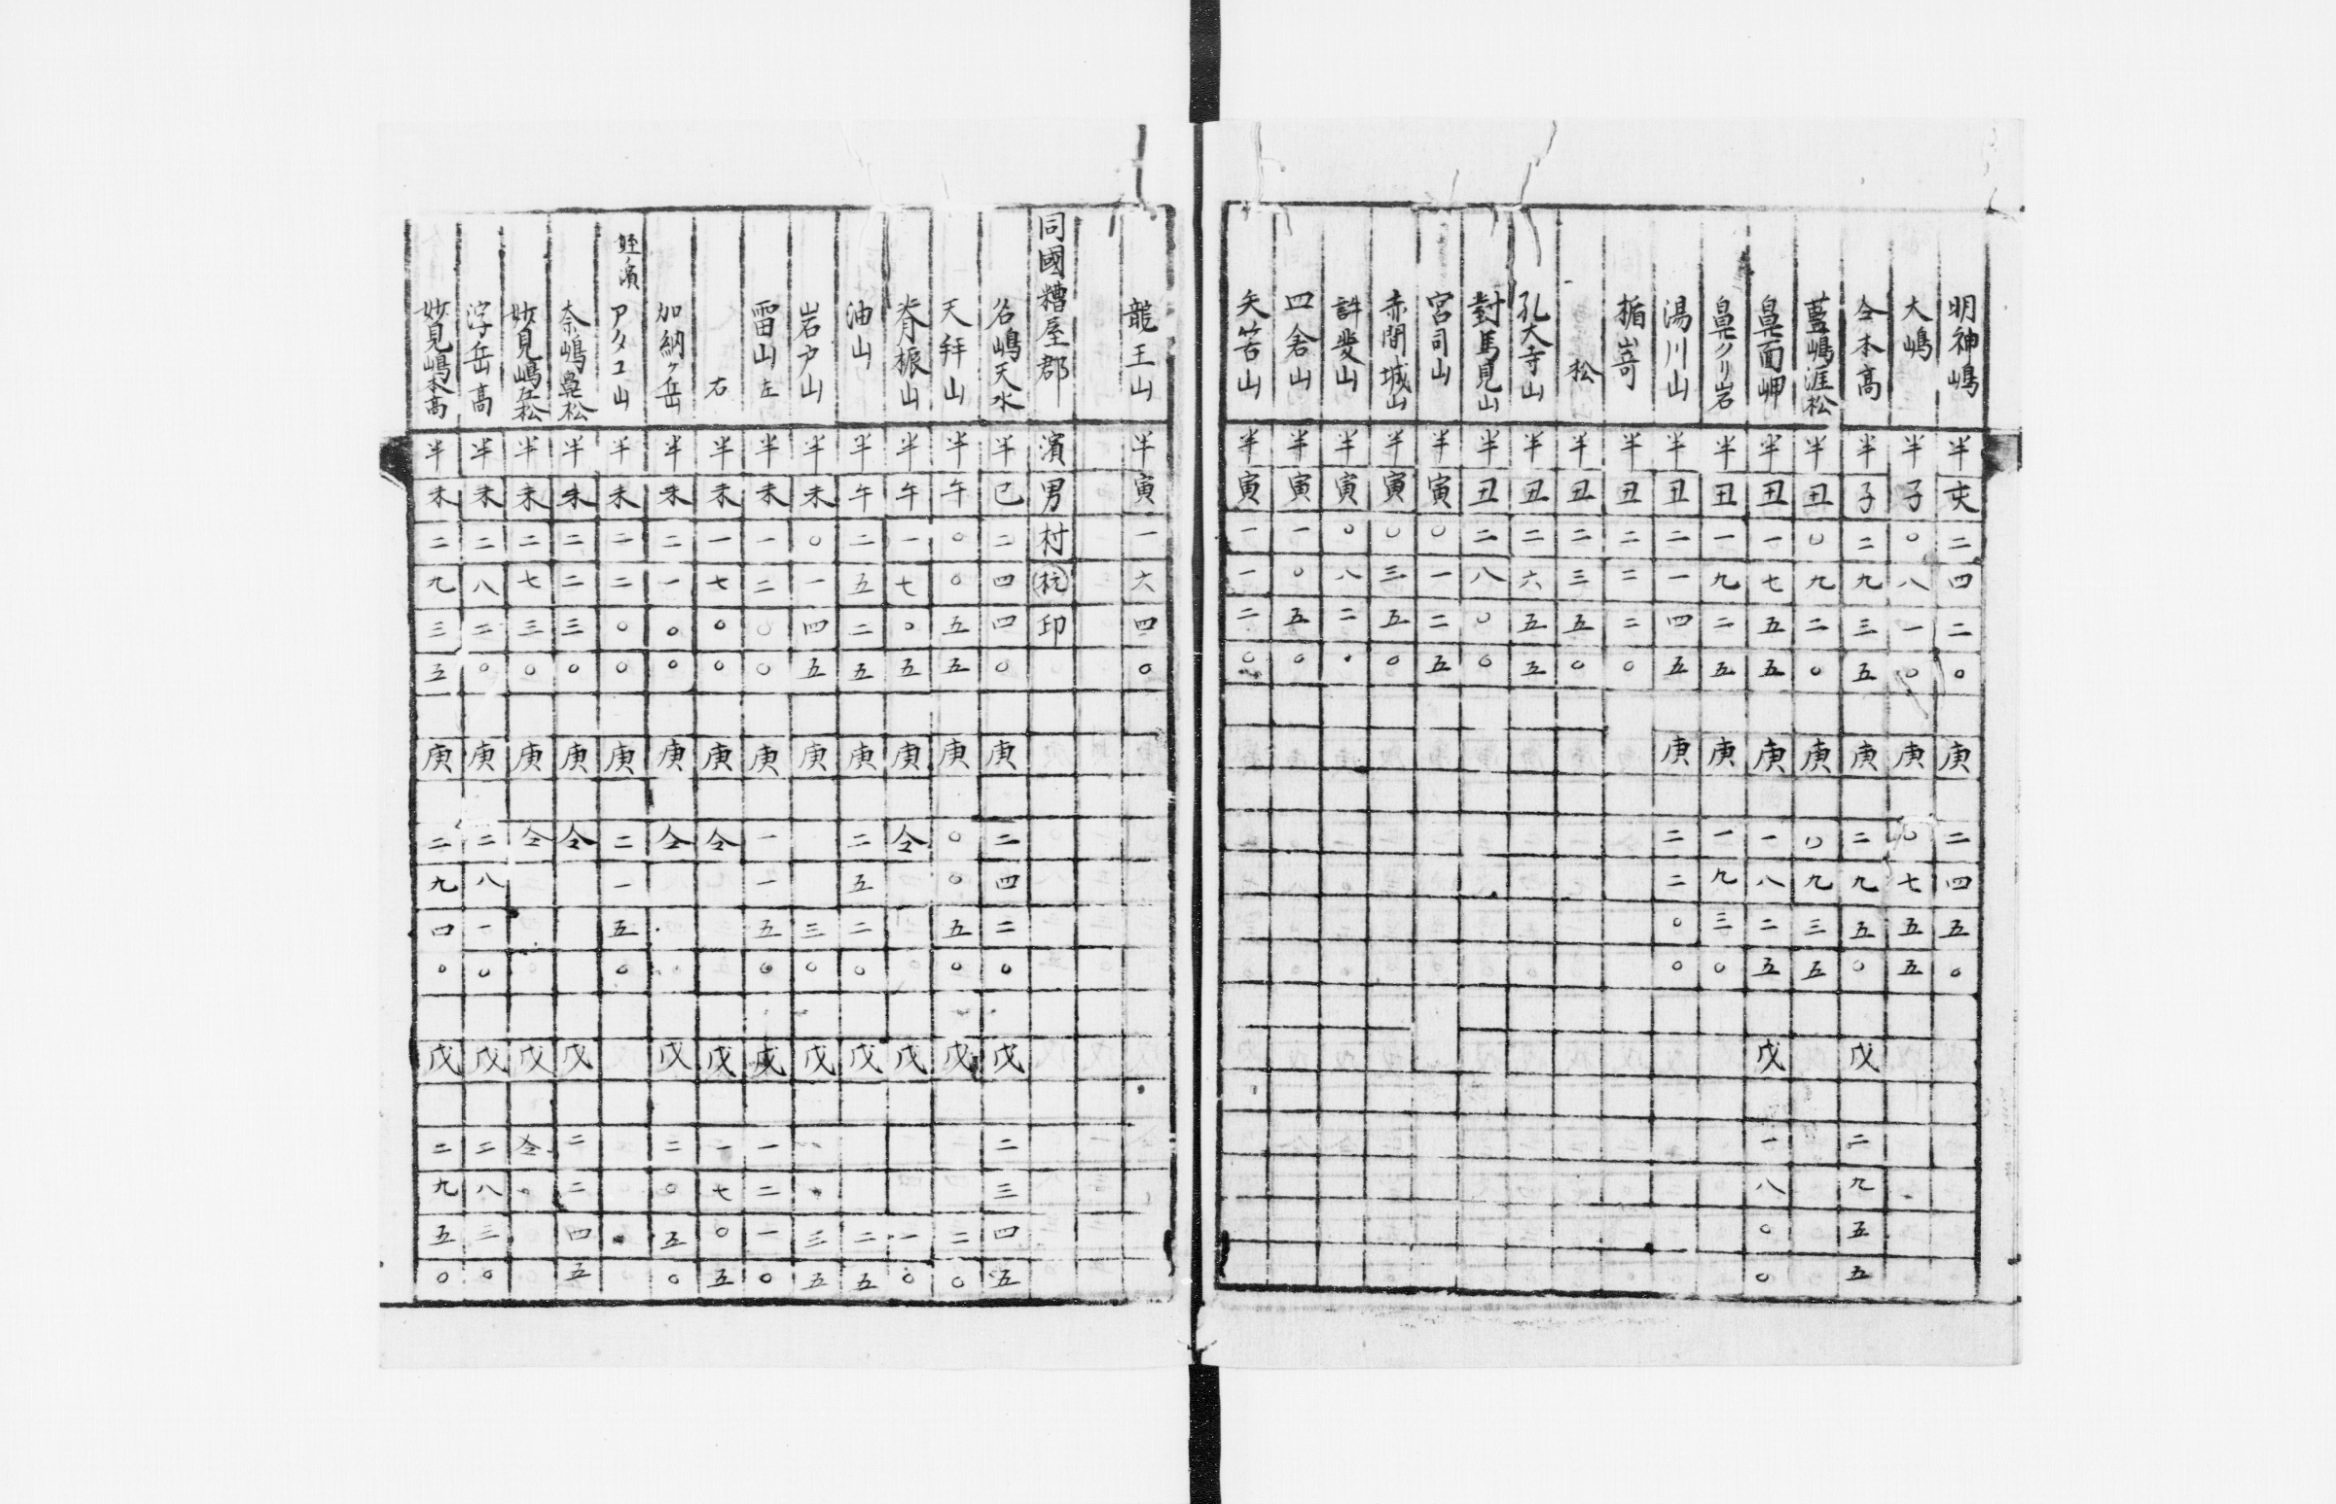 明神嶋 半 亥 二 四 二 〇 庚 二 四 五 〇
大嶋 半 子 〇 八 一 〇 庚 〇 七 五 五
仝本高 半 子 二 九 三 五 庚 二 九 五 〇 戊 二 九 五 五
藍嶋涯松 半 丑 〇 九 二 〇 庚 〇 九 三 五
鼻面岬 半 丑 一 七 五 五 庚 一 八 二 五 戊 一 八 〇 〇
鼻クリ岩 半 丑 一 九 二 五 庚 一 九 三 〇
湯川山 半 丑 二 一 四 五 庚 二 二 〇 〇
楯﨑 半 丑 二 二 二 〇
松 半 丑 二 三 五 〇
孔大寺山 半 丑 二 六 五 五
對馬見山 半 丑 二 八 〇 〇
宮司山 半 寅 〇 一 二 五
赤間城山 半 寅 〇 三 五 〇
許斐山 半 寅 〇 八 二 〇
四倉山 半 寅 一 〇 五 〇
矢筈山 半 寅 一 一 二 〇
龍王山 半 寅 一 六 四 〇
同國糟屋郡濱男村 杭 印
名嶋天水 半 巳 二 四 四 〇 庚 二 四 二 〇 戊 二 三 四 五
天拜山 半 午 〇 〇 五 五 庚 〇 〇 五 〇 戊 二 〇
脊振山 半 午 一 七 〇 五 庚 仝 戊 一 〇
油山 半 午 二 五 二 五 庚 二 五 二 〇 戊 二 五
岩戸山 半 未 〇 一 四 五 庚 三 〇 戊 三 五
雷山左 半 未 一 二 〇 〇 庚 一 一 五 〇 戊 一 二 一 〇
右 半 未 一 七 〇 〇 庚 仝 戊 一 七 〇 五
加納ケ岳 半 未 二 一 〇 〇 庚 仝 戊 二 〇 五 〇
姪濱 アタコ山 半 未 二 二 〇 〇 庚 二 一 五 〇
奈嶋鼻松 半 未 二 二 三 〇 庚 仝 戊 二 二 四 五
妙見嶋左松 半 未 二 七 三 〇 庚 仝 戊 仝
浮岳高 半 未 二 八 二 〇 庚 二 八 一 〇 戊 二 八 三 〇
妙見嶋本高 半 未 二 九 三 五 庚 二 九 四 〇 戊 二 九 五 〇